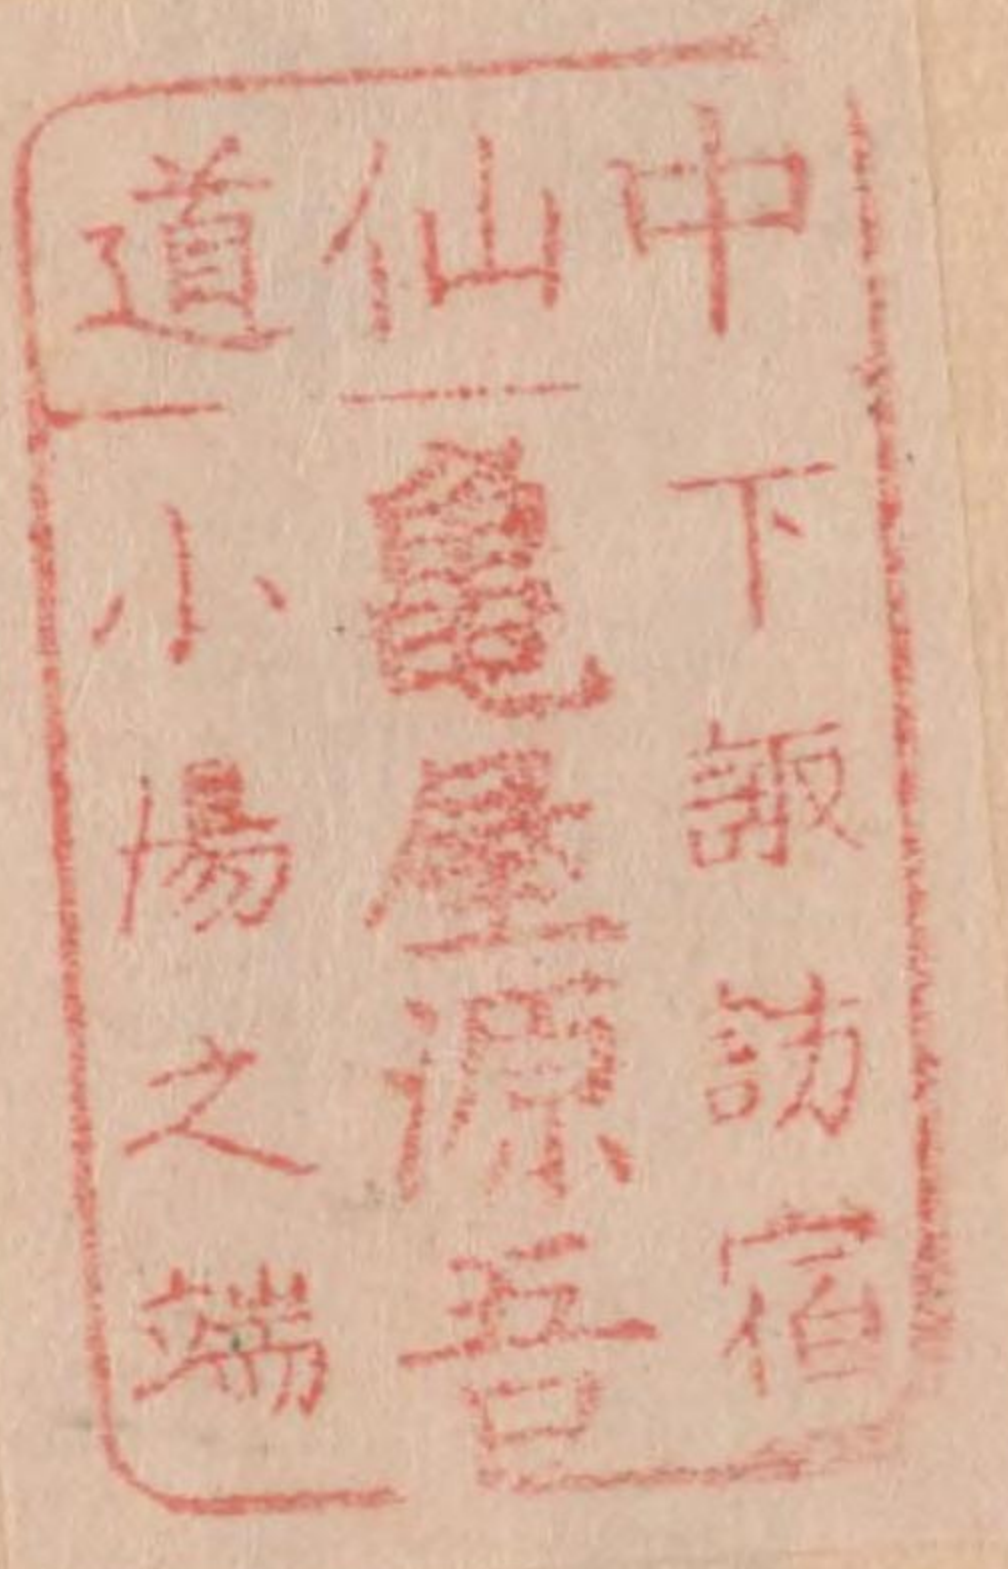 中仙道
下諏訪宿
亀屋源吾
小湯之端